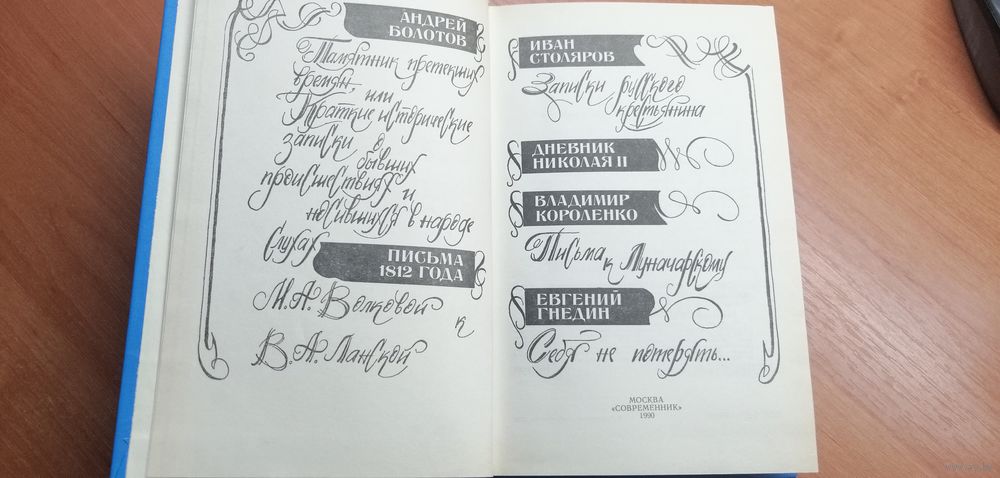 АНДРЕЙ
БОЛОТОВ
Памятник претекших
времян, или
Краткие исторические
записки о
бывших
происшествиях и
носившихся в народе
слухах
ПИСЬМА
1812 ГОДА
М.А. Волковой
к
В.А. Ланской
ИВАН
СТОЛЯРОВ
Записки русского
крестьянина
ДНЕВНИК
НИКОЛАЯ II
ВЛАДИМИР
КОРОЛЕНКО
Письма к Луначарскому
ЕВГЕНИЙ
ГНЕДИН
Себя не потерять...
МОСКВА
«СОВРЕМЕННИК»
1990